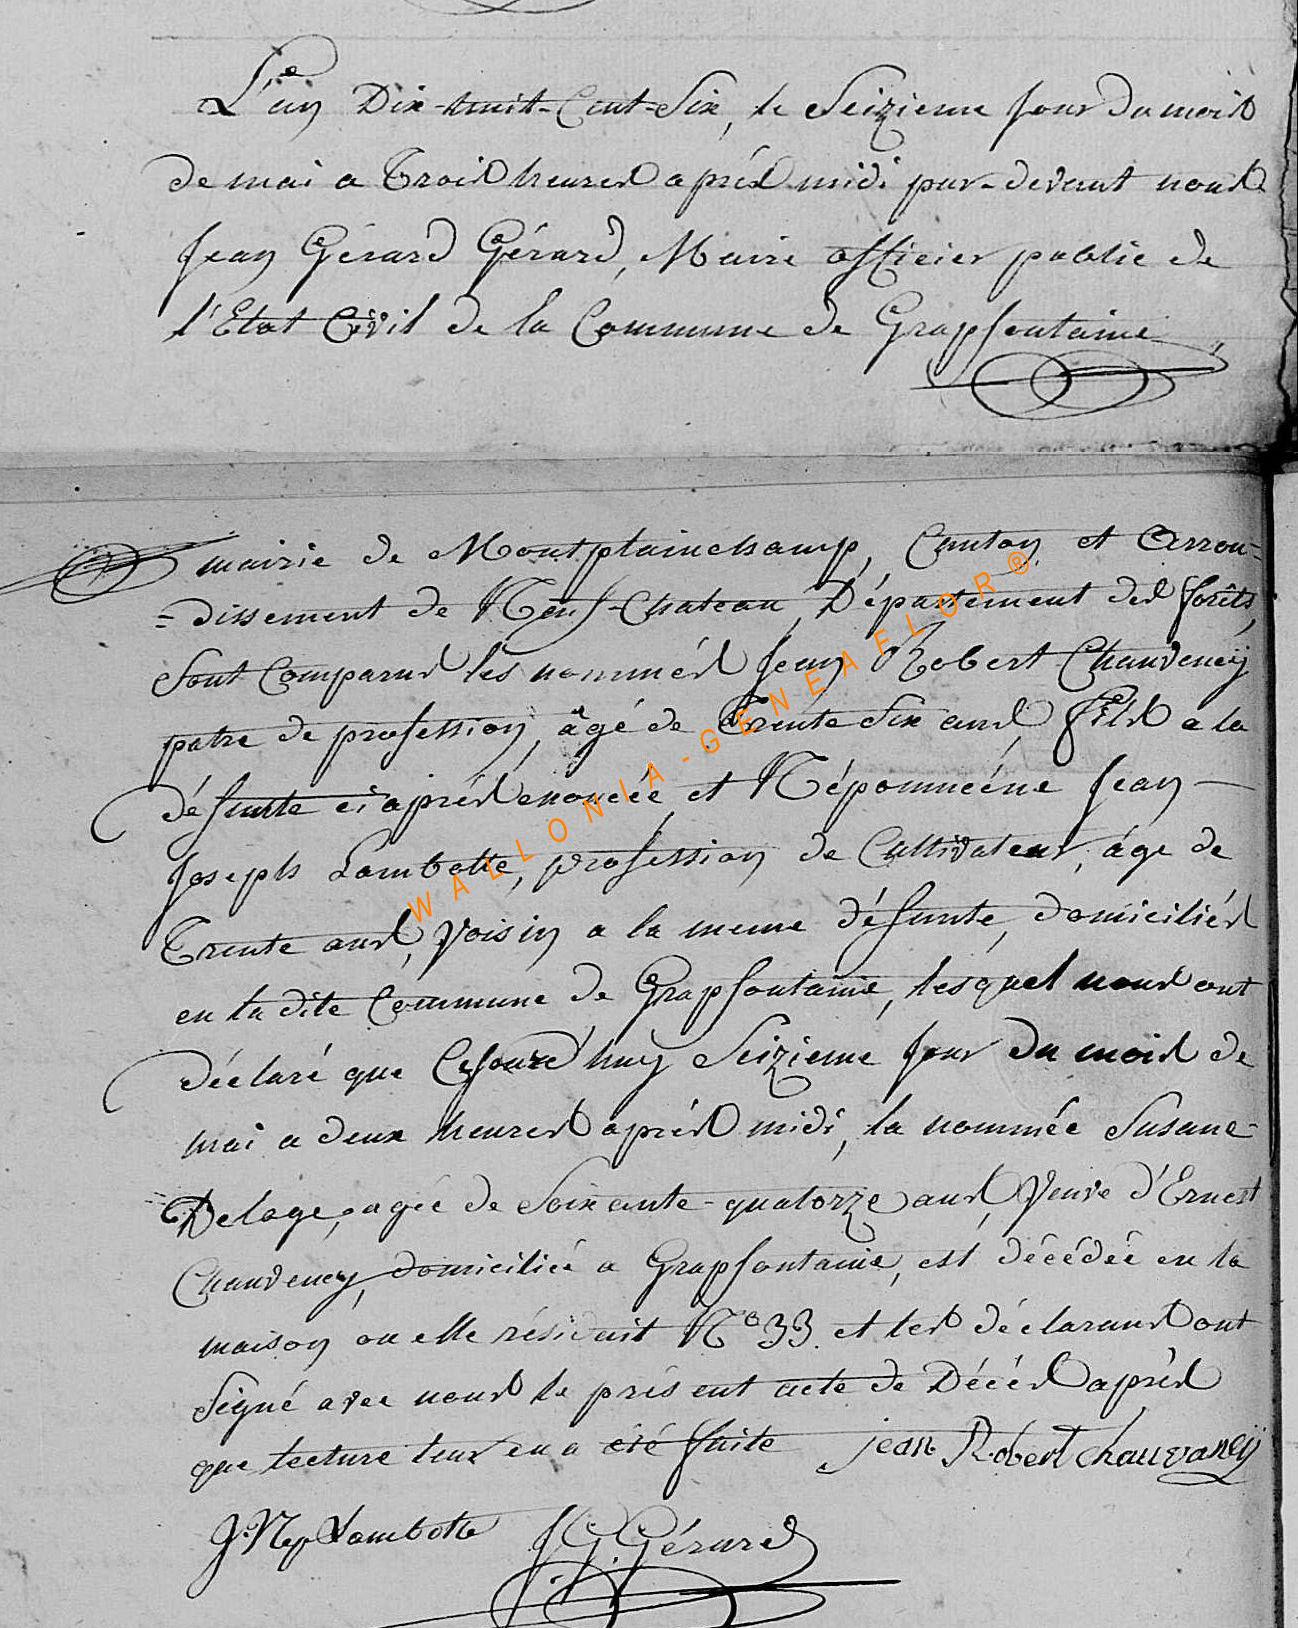 L'an Dix-huit-Cent-Six, le Seizieme jour du mois
de mai a Trois heures après midi par-devant nous
Jean Gérard Gérard, Maire officier public de
l'Etat Civil de la Commune de Grapfontaine,
mairie de Montplainchamp, Canton et Arron=
=dissement de Neuf-Chateau, Département des forêts,
Sont Comparus les nommés Jean Robert Chauvencÿ
patre de profession, âgé de Trente Six ans, fils a la
défunte ci après énoncée, et Népomucéne Jean
Joseph Lambotte, profession de Cultivateur, âge de
Trente ans, Voisin a la meme défunte, domiciliés
en la dite Commune de Grapfontaine, lesquel nous ont
déclaré que Cejourd'huy Seizieme jour du mois de
mai a deux heures après midi, la nommée Susane-
Delage, agée de Soixante-quatorze ans, Veuve d'Ernest
Chauvency, domiciliée a Grapfontaine, est décédée en la
maison ou elle résidait N° 33. et les déclarans ont
Signé avec nous le présent acte de Décès après
que lecture leur en a été faite jean Robert chauvancÿ
J. Nep Lambotte J G. Gérard
WALLONIA-GENEAFLOR®